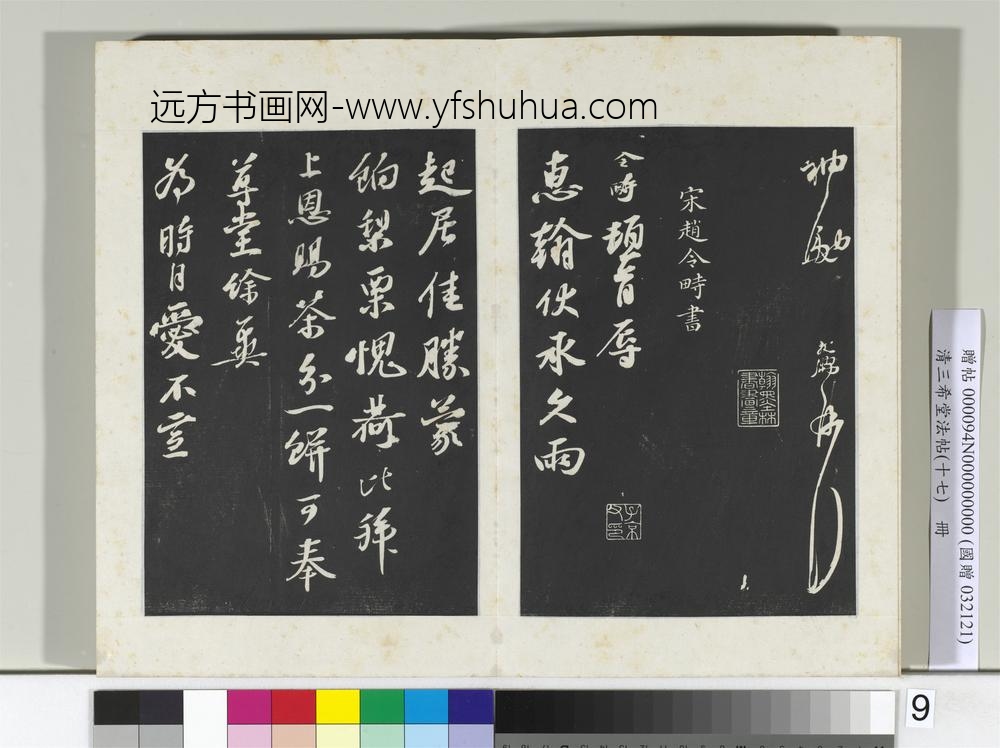 远方书画网-www.yfshuhua.com
神劇
宋趙令畤書
令畤頓首辱
惠翰伏承久雨
起居佳勝蒙
餉梨栗愧荷比拜
上恩賜茶分一餅可奉
尊堂餘冀
為時自愛不宣
翰墨林
書畫章
子京
父印
贈帖 000094N000000000 (國贈 032121)
清三希堂法帖(十七) 冊
9